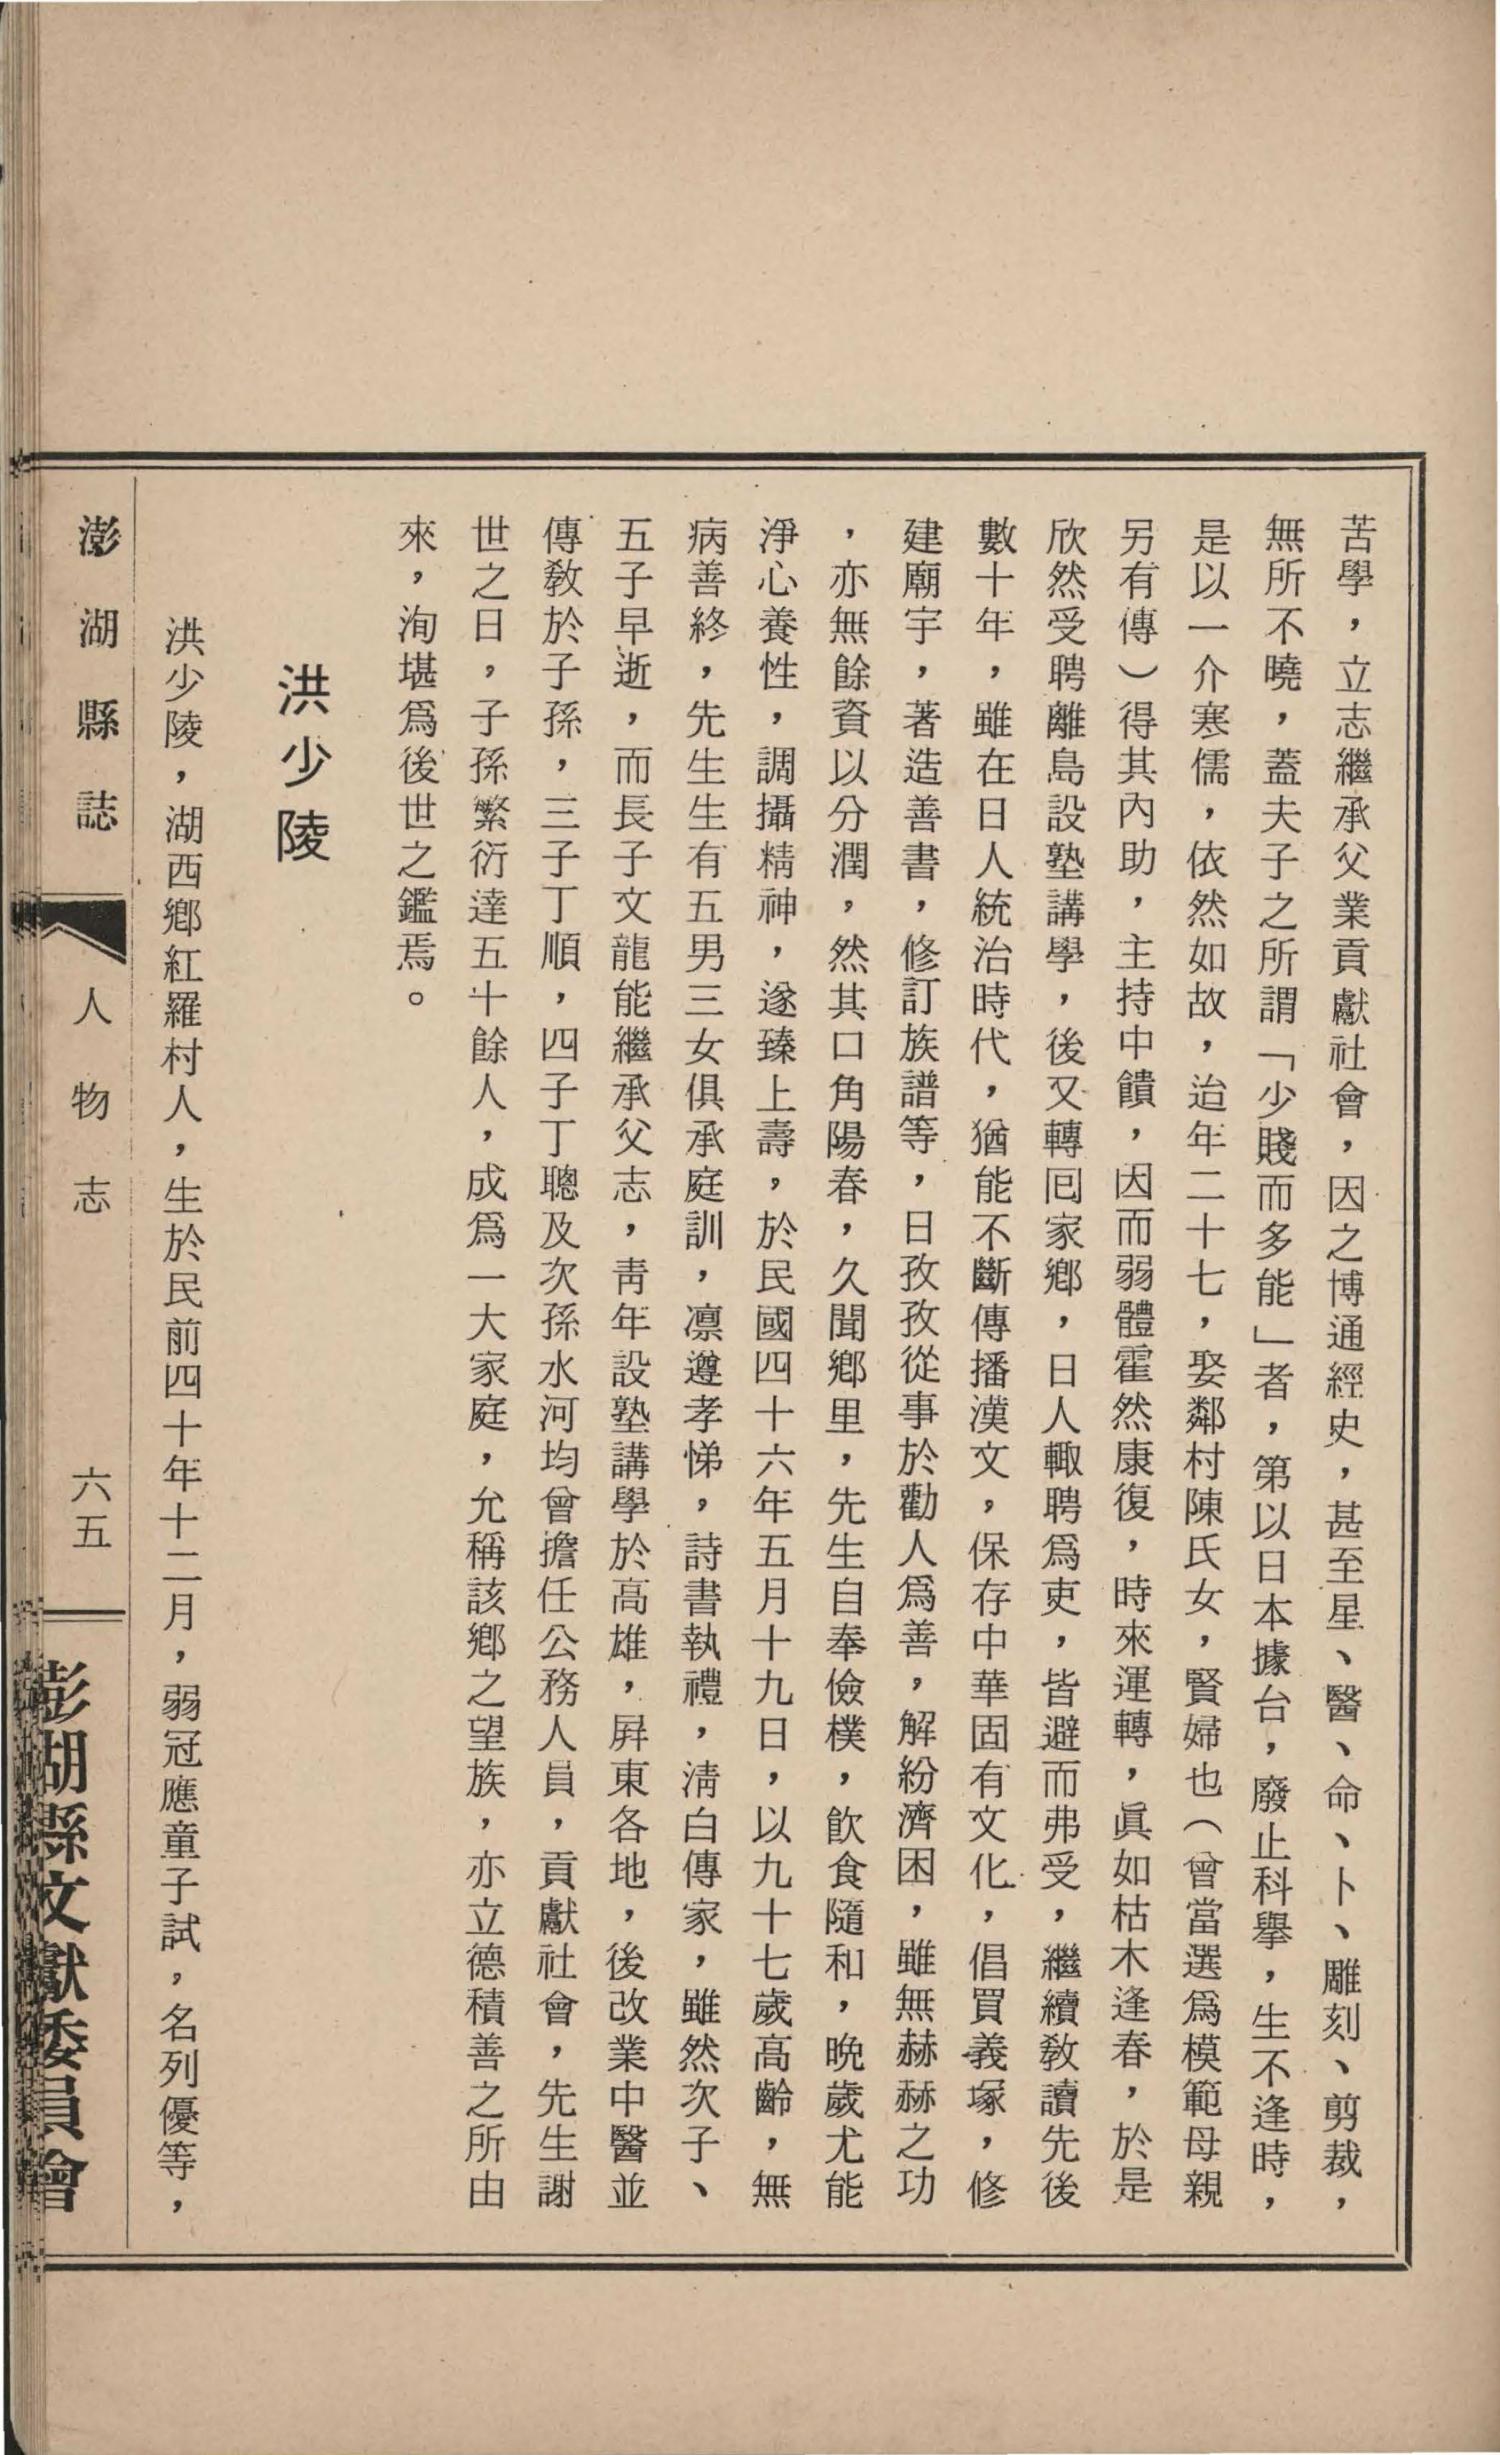 苦學，立志繼承父業貢獻社會，因之博通經史，甚至星、醫、命、卜、雕刻、剪裁，
無所不曉，蓋夫子之所謂「少賤而多能」者，第以日本據台，廢止科舉，生不逢時，
是以一介寒儒，依然如故，治年二十七，娶鄰村陳氏女，賢婦也（曾當選爲模範母親
另有傳）得其內助，主持中饋，因而弱體霍然康復，時來運轉，眞如枯木逢春，於是
欣然受聘離島設塾講學，後又轉囘家鄉，日人輙聘爲吏，皆避而弗受，繼續敎讀先後
數十年，雖在日人統治時代，猶能不斷傳播漢文，保存中華固有文化，倡買義塚，修
建廟宇，著造善書，修訂族譜等，日孜孜從事於勸人爲善，解紛濟困，雖無赫赫之功
，亦無餘資以分潤，然其口角陽春，久聞鄉里，先生自奉儉樸，飮食隨和，晩歲尤能
淨心養性，調攝精神，遂臻上壽，於民國四十六年五月十九日，以九十七歲高齡，無
病善終，先生生有五男三女俱承庭訓，凛遵孝悌，詩書執禮，淸白傳家，雖然次子、
五子早逝，而長子文龍能繼承父志，靑年設塾講學於高雄，屛東各地，後改業中醫並
傳敎於子孫，三子丁順，四子丁聰及次孫水河均曾擔任公務人員，貢獻社會，先生謝
世之日，子孫繁衍達五十餘人，成爲一大家庭，允稱該鄉之望族，亦立德積善之所由
來，洵堪爲後世之鑑焉。
洪少陵
洪少陵，湖西鄉紅羅村人，生於民前四十年十二月，弱冠應童子試，名列優等，
澎湖縣誌
人物志
六五
澎湖縣文獻委員會